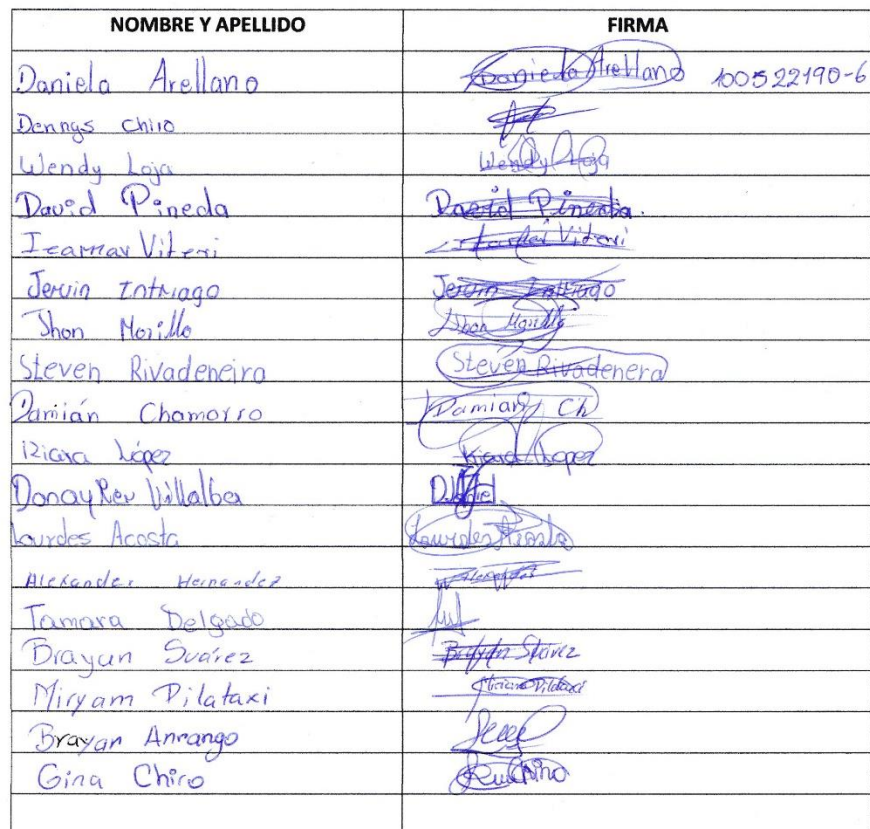 NOMBRE Y APELLIDO FIRMA
Daniela Arellano Daniela Arellano 100522190-6
Dennys Chiro
Wendy Loja Wendy Loja
David Pineda David Pineda.
Viteri Viteri
Jervin Intriago Jervin Intriago
Jhon Morillo Jhon Morillo
Steven Rivadeneira Steven Rivadenera
Damián Chamorro Damian Ch
Kiara López Kiara Lopez
Villalba
Lourdes Acosta Lourdes Acosta
Alexander Hernandez
Tamara Delgado
Brayan Suárez Brayan Suárez
Miryam Pilataxi Miriam Pilataxi
Brayan Anrango
Gina Chiro Chiro